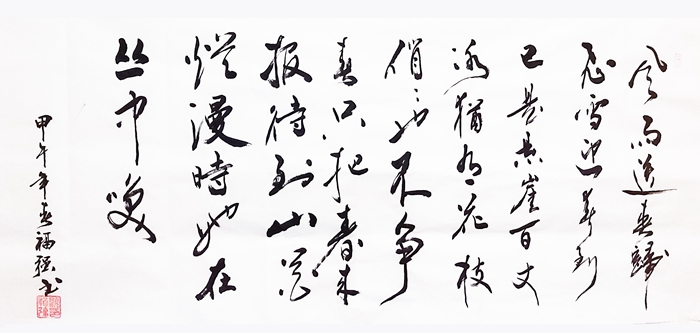 风雨送春歸
飞雪迎春到
已是悬崖百丈
冰猶有花枝
俏俏也不争
春只把春来
报待到山花
爛漫時她在
丛中咲
甲午年春福強书